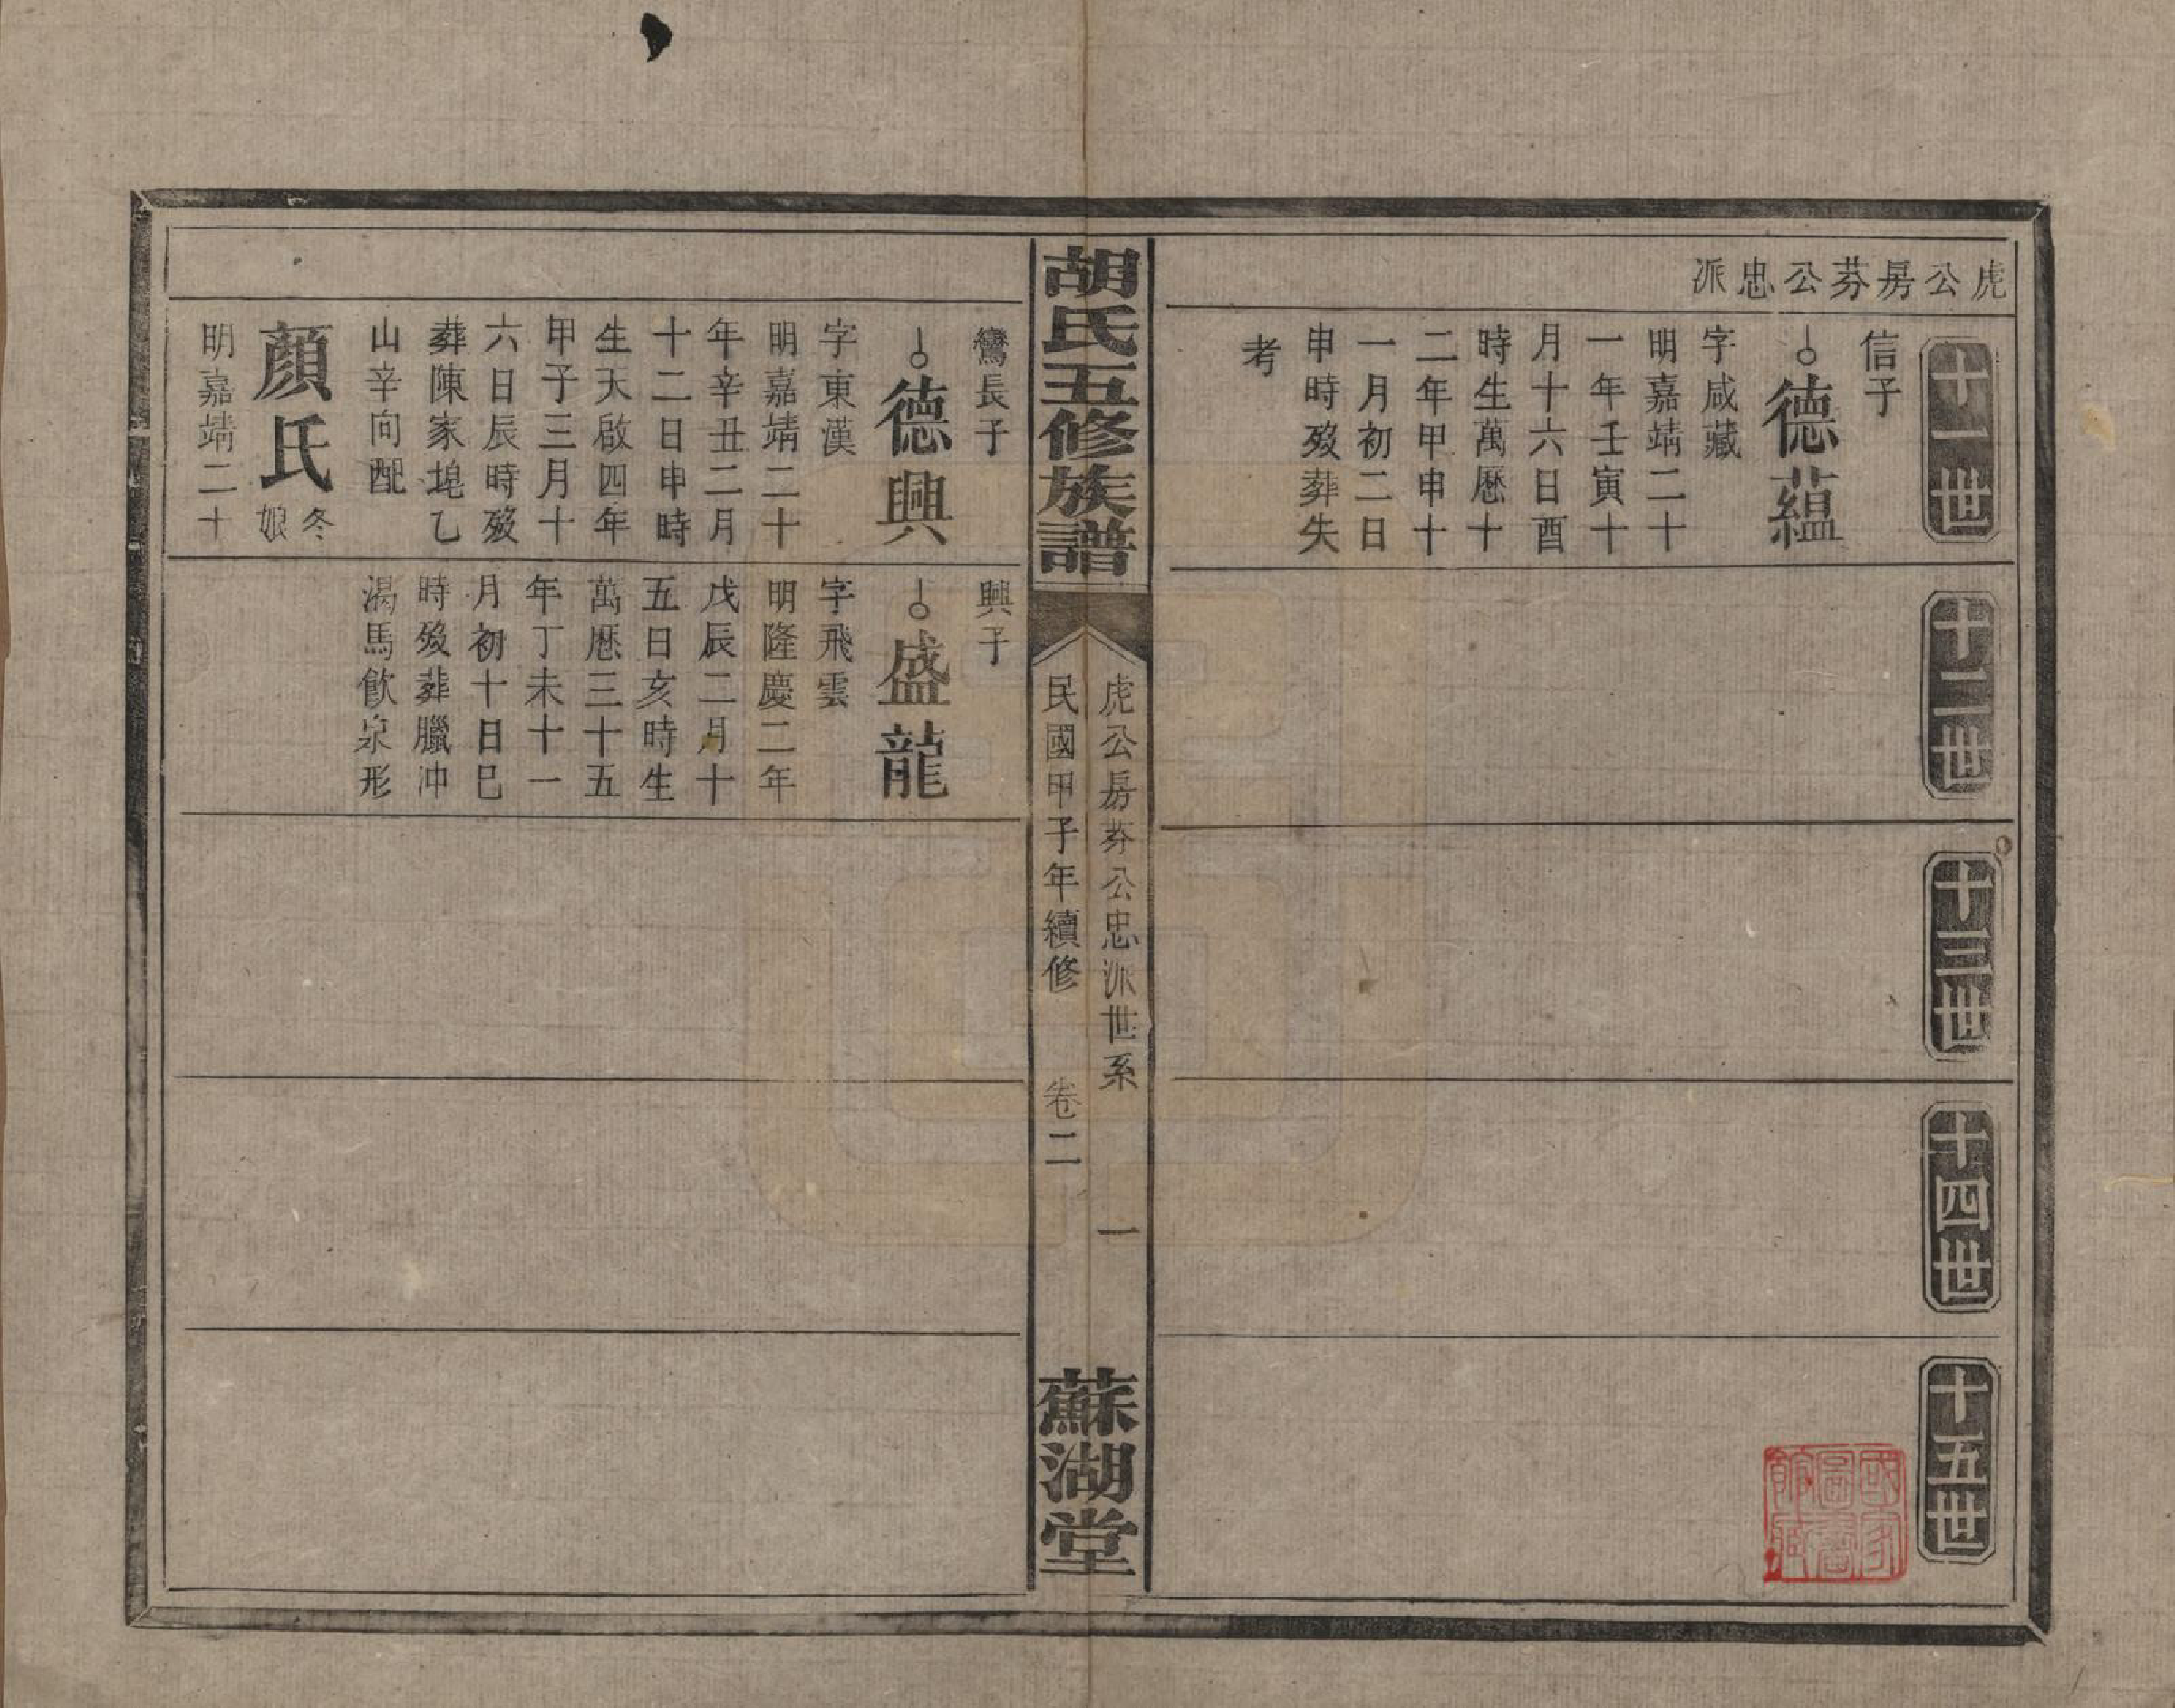 虎公房芬公忠派
十一世
信子
德蘊
字咸藏
明嘉靖二十
一年壬寅十
月十六日酉
時生萬厯十
二年甲申十
一月初二日
申時歿葬失
考
十二世
十三世
十四世
十五世
國家
圖書
館藏
胡氏五修族譜
虎公房芬公忠派世系
一
民國甲子年續修
卷二
蘇湖堂
鸞長子
德興
字東漢
明嘉靖二十
年辛丑二月
十二日申時
生天啟四年
甲子三月十
六日辰時歿
葬陳家埦乙
山辛向配
顏氏冬娘
明嘉靖二十
興子
盛龍
字飛雲
明隆慶二年
戊辰二月十
五日亥時生
萬厯三十五
年丁未十一
月初十日巳
時歿葬臘冲
渴馬飲泉形